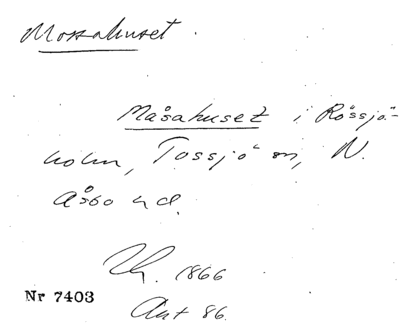 Mossahuset.
Måsahuset i Rössjö-
holm, Tossjö sn, N.
Åsbo hd.
1866
Nr 7403
Ant 86.